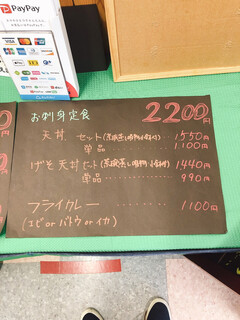 PayPay
お刺身定食 2200円
天丼 セット(茶碗蒸し・吸物・小鉢付) ・・・ 1550円
単品 ・・・・・・ 1100円
げそ天丼セット(茶碗蒸し・吸物・小鉢付) 1440円
単品 ・・・・・・ 990円
フライカレー ・・・・・・・・ 1100円
(エビ or バトウ or イカ)